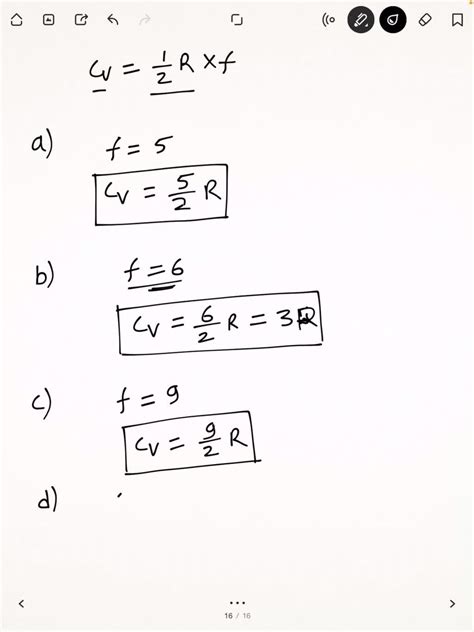 Cv = 1/2 R × f
a) f = 5
Cv = 5/2 R
b) f = 6
Cv = 6/2 R = 3R
c) f = 9
Cv = 9/2 R
d)
16 / 16